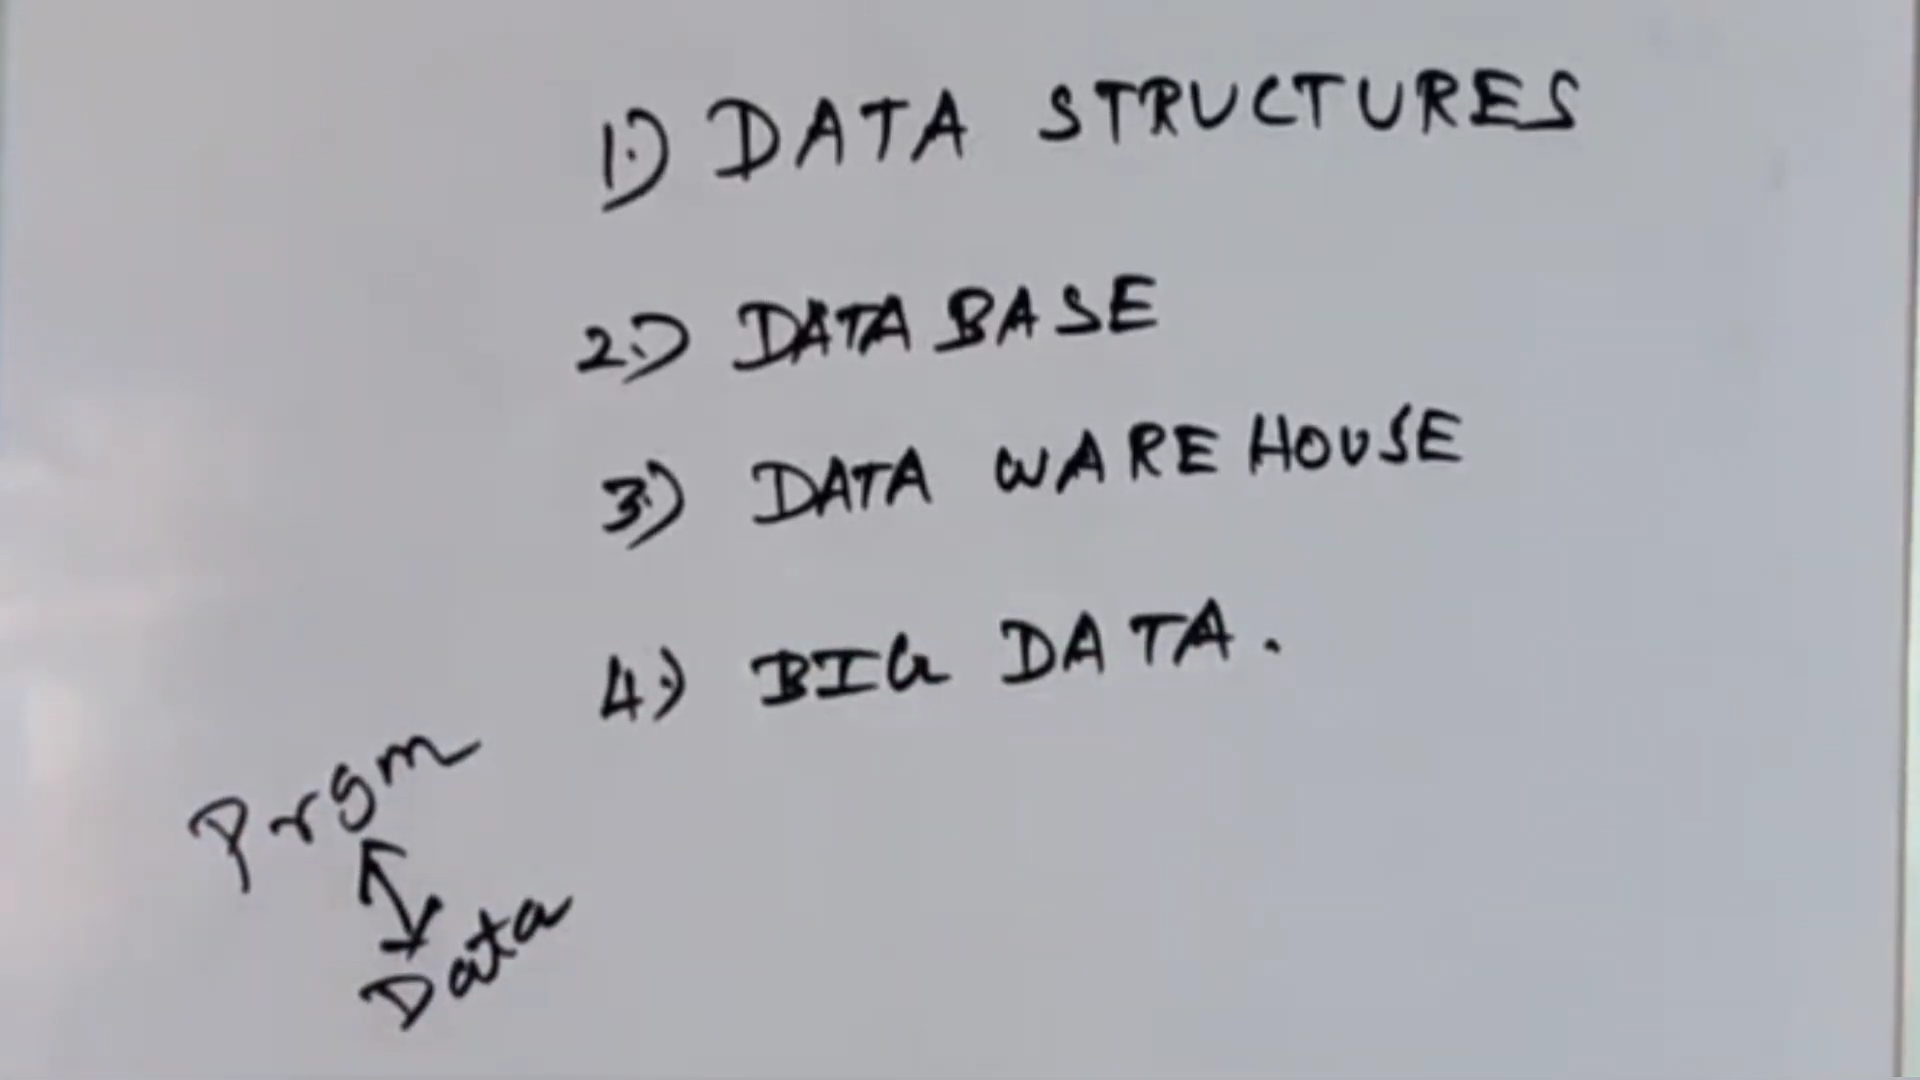 1.) DATA STRUCTURES
2.) DATABASE
3.) DATA WAREHOUSE
4.) BIG DATA.
Prgm
Data